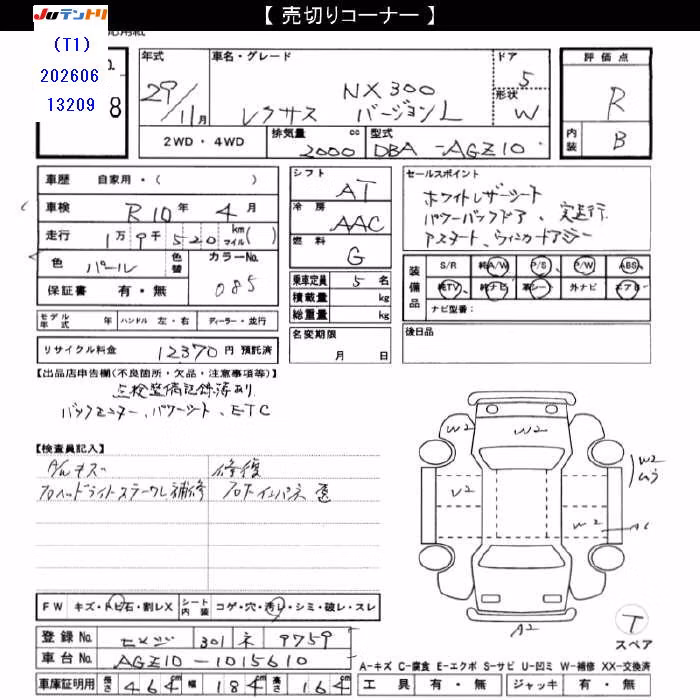 【 売切りコーナー 】
JUテントリ
(T1)
202606
13209
8
年式 車名・グレード ドア 評価点
29/11月 レクサス NX300 バージョンL 5
形状 W
R
内装 B
2WD・4WD 排気量 2000 cc 型式 DBA-AGZ10
車歴 自家用・( )
車検 R10年 4月
走行 1万9千520 km マイル( )
色 パール 色替 カラーNo. 085
保証書 有・無
モデル年式 年 ハンドル 左・右 ディーラー・並行
リサイクル料金 12370円 預託済
シフト AT
冷房 AAC
燃料 G
乗車定員 5名
積載量 kg
総重量 kg
名変期限
月 日
セールスポイント
ホワイトレザーシート
パワーバックドア、実走行
装備品 S/R 純A/W P/S P/W ABS
純TV 純ナビ 革シート 外ナビ エアB
ナビ型番:
後日品
【出品店申告欄(不良箇所・欠品・注意事項等)】
点検整備記録簿あり
バックモニター、パワーシート、ETC
【検査員記入】
A/Wキズ 修復
補修
W2 W2 W2 ムラ
U2 W2
A2
T
スペア
FW キズ・トビ石・割レX シート内装 コゲ・穴・汚レ・シミ・破レ・スレ
登録No. 301 ネ 9759
車台No. AGZ10-1015610
車庫証明用 長さ 464cm 幅 184cm 高さ 164cm
A-キズ C-腐食 E-エクボ S-サビ U-凹ミ W-補修 XX-交換済
工具 有・無 ジャッキ 有・無